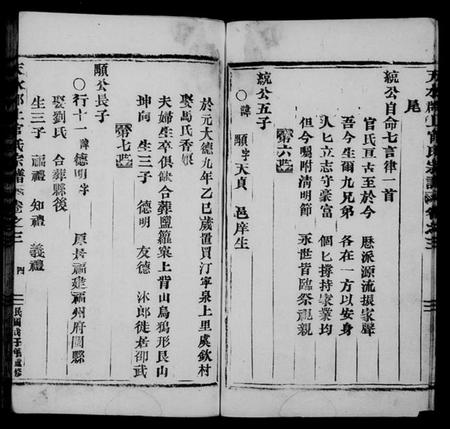 尾
統公自命七言律一首
官氏亘古至於今 歷派源流振家聲
吾今生爾九兄弟 各在一方以安身
人匕立志守豪富 個匕撐持家業均
但今囑咐清明節 永世皆臨祭祖親
第六世
統公五子
諱 順字天貞 邑庠生
於元大德九年乙巳歲置買汀寧泉上里虞欽村
娶馬氏香娘
夫婦生卒俱缺合葬鹽籮寨上背山烏鴉形艮山
坤向 生三子 德明 友德 沐郎徙居邵武
第七世
順公長子
○行十一 諱德明字 原居福建福州府閩縣
娶劉氏 合葬縣後
生三子 福禮 知禮 義禮
天水郡上官氏宗譜 卷之三 四